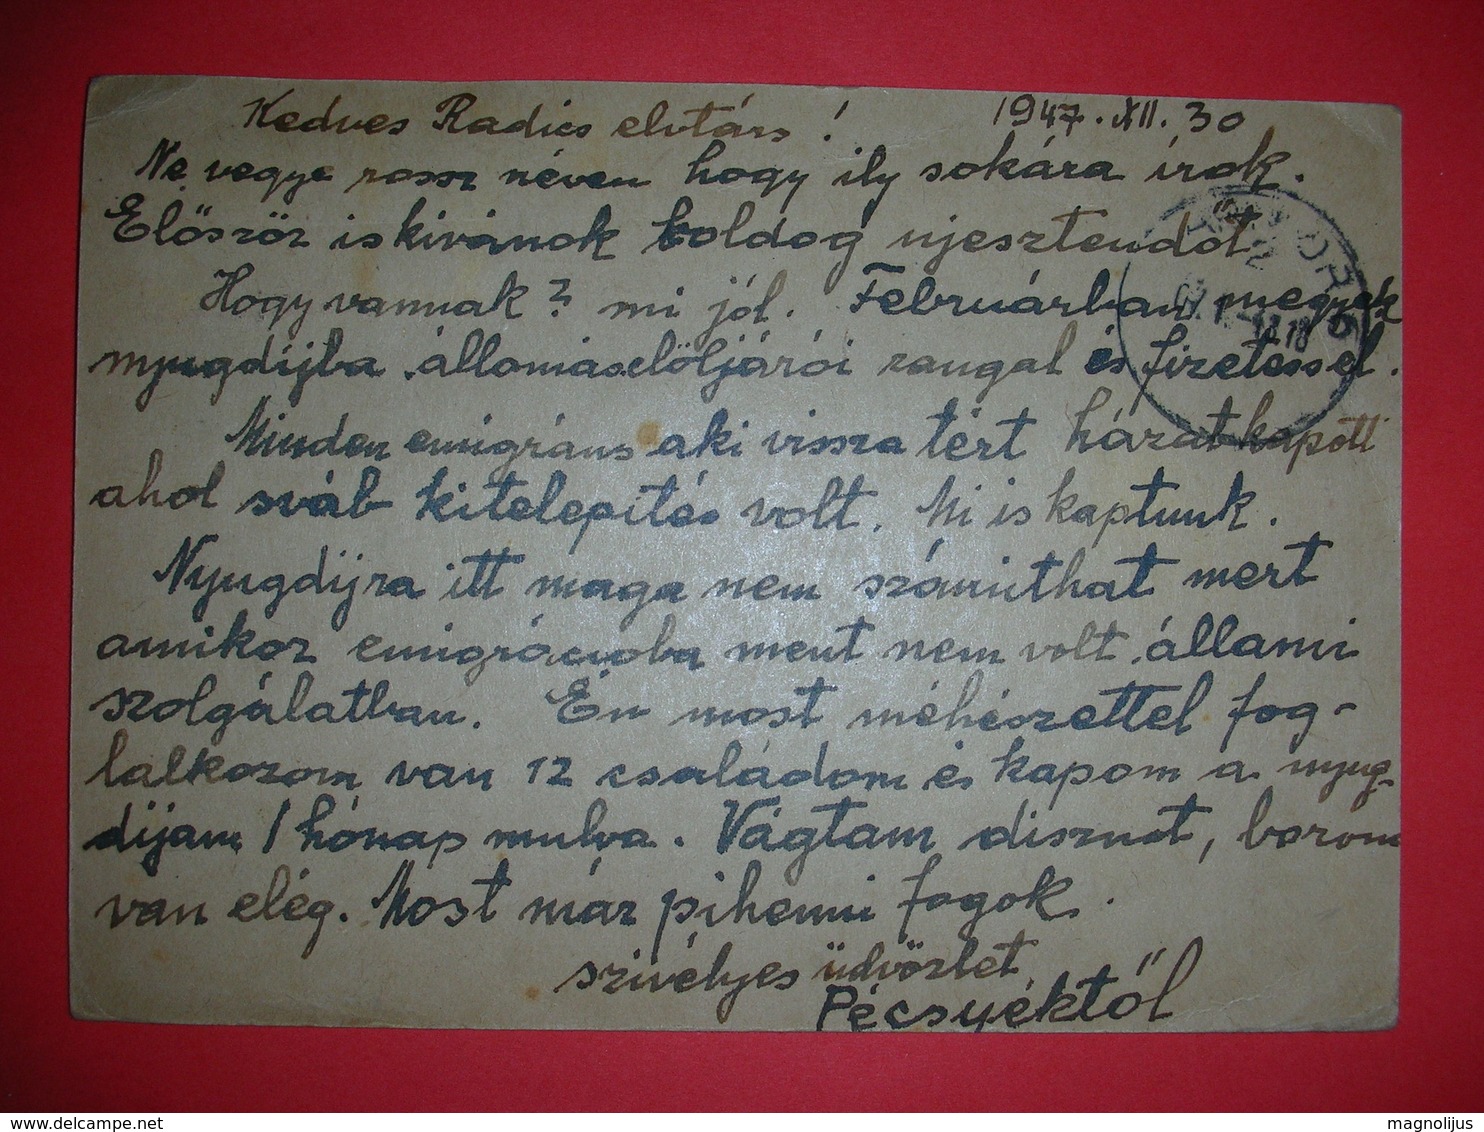 Kedves Radics elvtárs! 1947.XII.30
Ne vegye rossz néven hogy ily sokára írok.
Először is kivánok boldog ujesztendőt
Hogy vannak? mi jól. Februárban megyek
nyugdíjba állomáselöljárói rangal és fizetéssel.
Minden emigráns aki vissza tért házat kapott
ahol sváb kitelepítés volt. Mi is kaptunk.
Nyugdijra itt maga nem számithat mert
amikor emigrációba ment nem volt állami
szolgálatban. Én most méhészettel fog-
lalkozom van 12 családom és kapom a nyug-
díjam 1 hónap mulva. Vágtam disznót, borom
van elég. Most már pihenni fogok.
szívélyes üdvözlet
Pécsyéktől
magnolijus